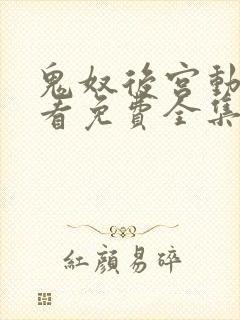 鬼奴後宮動
看免費全集
紅顏易碎